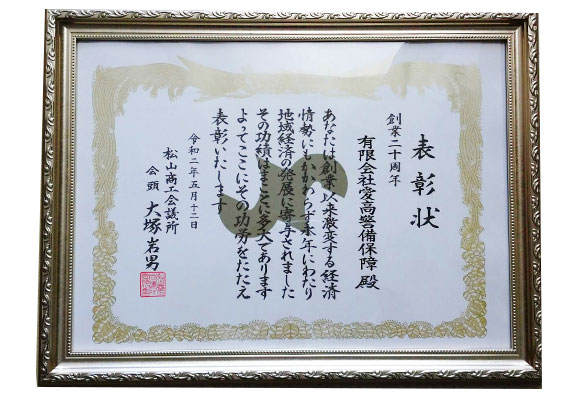 表彰状
創業二十周年
有限会社愛高警備保障 殿
あなたは創業以来激変する経済
情勢にもかかわらず永年にわたり
地域経済の発展に寄与されました
その功績はまことに多大であります
よってここにその功労をたたえ
表彰いたします
令和二年五月十二日
松山商工会議所
会頭 大塚岩男